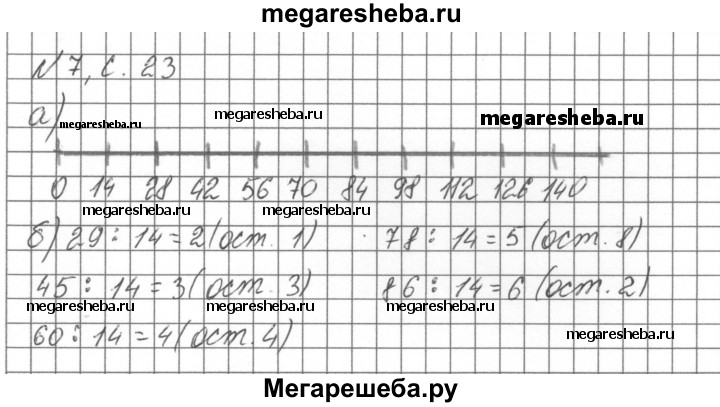 megaresheba.ru
№ 7, с. 23
а)
megaresheba.ru megaresheba.ru megaresheba.ru
0 14 28 42 56 70 84 98 112 126 140
megaresheba.ru megaresheba.ru
б) 29 : 14 = 2 (ост. 1) 78 : 14 = 5 (ост. 8)
45 : 14 = 3 (ост. 3) 86 : 14 = 6 (ост. 2)
megaresheba.ru megaresheba.ru megaresheba.ru
60 : 14 = 4 (ост. 4) megaresheba.ru
Мегарешеба.ру